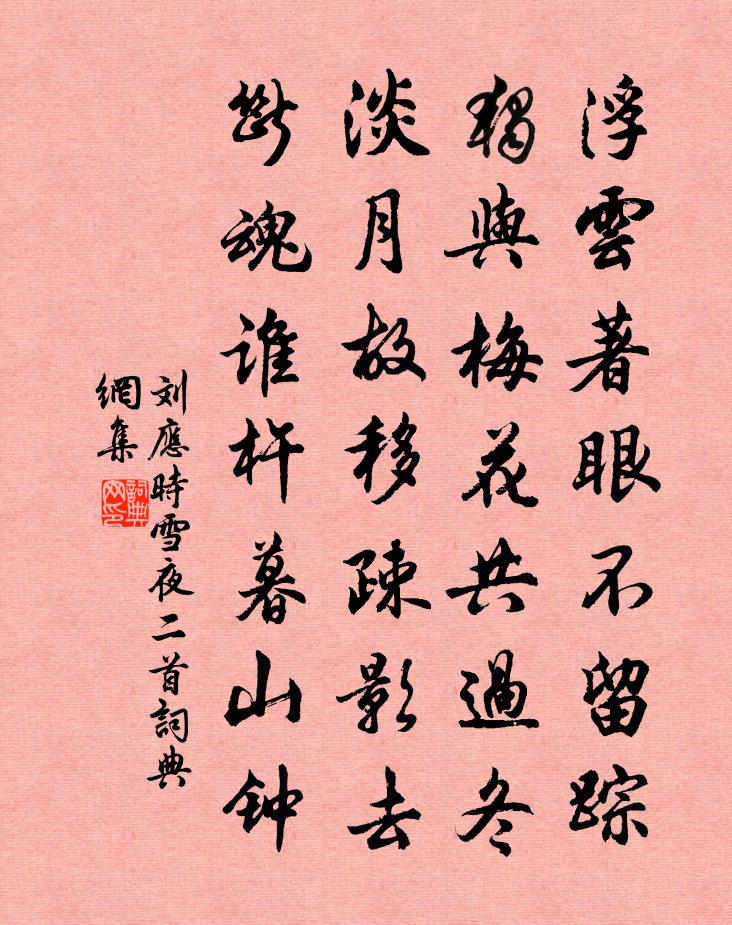 浮雲著眼不留踪
獨與梅花共過冬
淡月故移疎影去
斷魂谁杵暮山钟
刘應時雪夜二首詞典
網集
詞典
网印